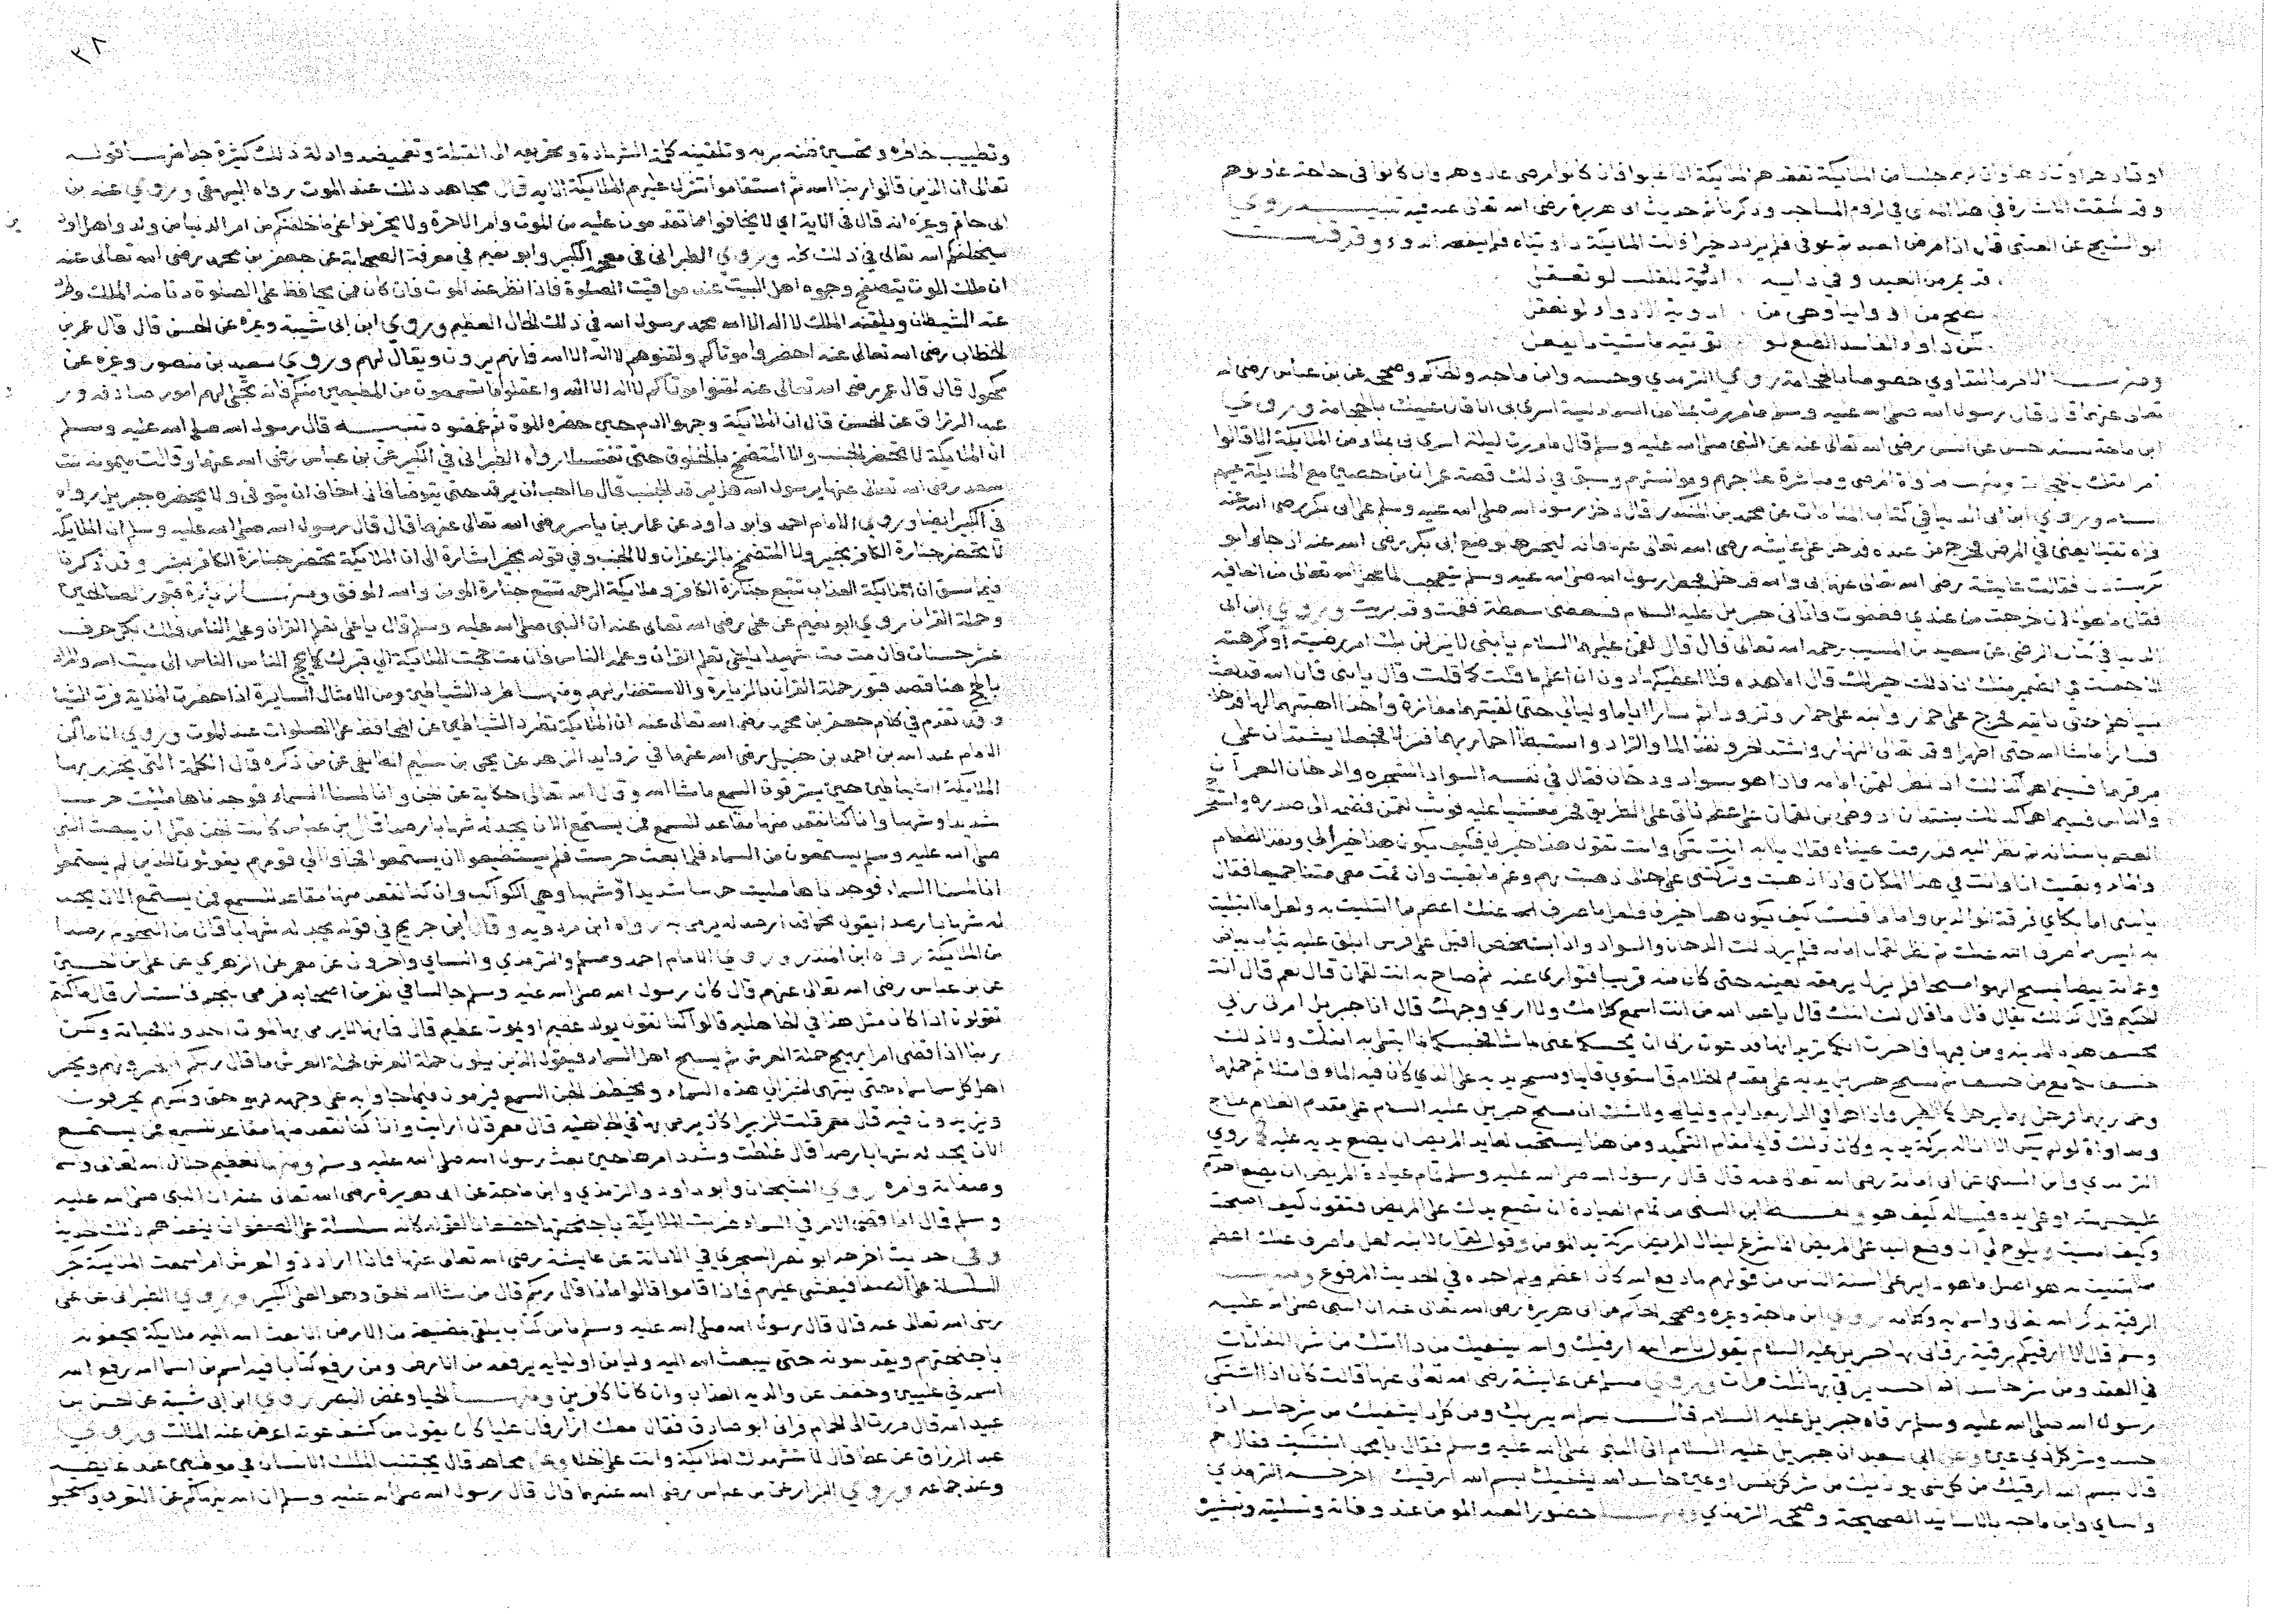 او تادها وان لهم جلسا من الملائكة تفقدهم الملائكة اذا غابوا فان كانوا مرضى عادوهم وان كانوا في حاجة عاونوهم
وقد سبقت الاشارة في هذا في لزوم المساجد وذكرنا ثم حديث ابى هريرة رضى الله تعالى عنه فيه تنبيه روى
ابو الشيخ عن قال اذا مرض العبد ثم عوفى فلم يزدد خيرا قالت الملائكة داويناه فلم ينفعه الدواء وقد قلت
قد يمرض العبد وفي دايه ادوية للقلب لو تعقل
ومنهــا الامر بالتداوي خصوصا بالحجامة روى الترمذي وحسنه وابن ماجه والحاكم وصححه عن بن عباس رضى الله
تعالى عنهما قال قال رسول الله صلى الله عليه وسلم ما مررت بملا من السماء ليلة اسري بى الا قال عليك بالحجامة وروى
ابن ماجة بسند حسن عن انس رضى الله تعالى عنه عن النبي صلى الله عليه وسلم قال ما مررت ليلة اسرى بى بملاء من الملائكة الا قالوا
مر امتك بالحجامة ومداواة المرضى ومباشرة علاجهم وموانستهم وسبق في ذلك قصة عمران بن حصين مع الملائكة
وروى ابن ابى الدنيا في كتاب عن محمد بن المنكدر قال دخل رسول الله صلى الله عليه وسلم على ابى بكر رضى الله عنه
فراه ثقيلا يعنى في المرض فخرج من عنده فدخل على عايشة رضى الله تعالى عنها فانه ليخبرها بوجع ابى بكر رضى الله عنه اذ جاء ابو
بكر فقالت عايشة رضى الله تعالى عنها ابى والله فدخل فجعل رسول الله صلى الله عليه وسلم يتعجب لما عجل الله تعالى من العافية
فقال ما هو الا ان خرجت من عندي فغفوت فاتانى جبريل عليه السلام فسعطنى سعطة فقمت وقد بريت وروى ابن ابى
الدنيا في كتاب الرضى عن سعيد بن المسيب رحمه الله تعالى قال قال لقمن عليهما السلام يا بنى لا ينزلن بك امر رضيته او كرهته
الا جعلت في الضمير منك ان ذلك خير لك قال اما هذه فلا اعطيكها دون ان اعلم ما قلت كما قلت قال يا بنى فان الله قد بعث
نبيا هلم حتى ناتيه فخرج على حمار وابنه على حمار وتزودا ثم سارا اياما وليالي حتى لقيتهما مفازة فاخذا اهبتهما لها فدخلا
فسارا ما شا الله حتى اظهرا وقد تعالى النهار واشتد الحر ونفد الما والزاد واستبطا احماريهما فنزلا فجعلا يشتدان على
سوقهما فبينما هما كذلك اذ نظر لقمن امامه فاذا هو بسواد ودخان فقال في نفسه السواد الشجر والدخان العمران
والناس فبينما هما كذلك يشتدان اذ وطى بن لقمان على عظم ناتى على الطريق فخر مغشيا عليه فوثب لقمن فضمه الى صدره واستخرج
العظم باسنانه ثم نظر اليه فذرفت عيناه فقال يا ابه انت تبكى وانت تقول هذا خير لي فكيف يكون هذا خيرا لي ونفد الطعام
والماء وبقيت انا وانت في هذا المكان فان ذهبت وتركتنى على حالى ذهبت بهم وغم ما بقيت وان اقمت معى متنا جميعا فقال
يا بنى اما بكاي فرقة الوالدين واما ما قلت كيف يكون هذا خير لي فلعل ما صرف الله عنك اعظم مما ابتليت به ولعل ما ابتليت
به ايسر مما صرف الله عنك ثم نظر لقمان امامه فلم ير ذلك الدخان والسواد واذا بشخص اقبل على فرس ابلق عليه ثياب بياض
وعمامة بيضا يمسح الهوا مسحا فلم يزل يرمقه بعينه حتى كان منه قريبا فتوارى عنه ثم صاح به انت لقمان قال نعم قال انت
الحكيم قال كذلك يقال قال ما قال لك ابنك قال يا عبد الله من انت اسمع كلامك ولا ارى وجهك قال انا جبريل امرنى ربى
بخسف هذه المدينة ومن فيها فاخبرت انكما تريدانها فدعوت ربى ان يحبسكما عنى بما شا فحبسكما بما ابتلى به ابنك ولولا ذلك
خسف بكما مع من خسف ثم مسح جبريل يده على قدم الغلام فاستوى قايما ومسح يده على الذي كان فيه الماء فامتلا ثم حملهما
وحماريهما فرحل بهما كما يرحل الطير فاذا هما في الدار بعد ايام وليالي ولا شك ان مسح جبريل عليه السلام على مقدم الغلام علاج
ومداواة لو لم يكن الا اناله بركة يده وكان ذلك قايما مقام التكميد ومن هنا يستحب لعايد المريض ان يضع يديه عليه روى
الترمذي وابن السنى عن ابى امامة رضى الله تعالى عنه قال قال رسول الله صلى الله عليه وسلم تمام عيادة المريض ان يضع احدكم
على جبهته او على يده فيساله كيف هو ولفــظ ابن السنى من تمام العيادة ان تضع يدك على المريض فتقول كيف اصبحت
وكيف امسيت ويلوح لى ان وضع اليد على المريض انما شرع لينال المريض بركة يد المومن وقول لقمان لابنه لعل ما صرف عنك اعظم
مما ابتليت به هو اصل ما هو داير على السنة الناس من قولهم ما دفع الله كان اعظم ولم اجده في الحديث المرفوع ومنهــا
الرقية بذكر الله تعالى واسمايه وكلامه روى ابن ماجة وغيره وصححه الحاكم عن ابى هريرة رضى الله تعالى عنه ان النبى صلى الله عليه
وسلم قال الا ارقيكم برقية رقانى بها جبريل عليه السلام يقول باسم الله ارقيك والله يشفيك من داء ياتيك من شر النفاثات
في العقد ومن شر حاسد اذا حسد يرقي بها ثلث مرات وروى مسلم عن عايشة رضى الله تعالى عنها قالت كان اذا اشتكى
رسول الله صلى الله عليه وسلم رقاه جبريل عليه السلام قال بسم الله يبريك ومن كل داء يشفيك من شر حاسد اذا
حسد وشر كل ذي عين وعن ابي سعيد ان جبريل عليه السلام اتى النبي صلى الله عليه وسلم فقال يا محمد اشتكيت فقال نعم
قال بسم الله ارقيك من كل شى يوذيك من شر كل نفس او عين حاسد الله يشفيك بسم الله ارقيك اخرجــه الترمذي
والنساي وابن ماجه بالاسانيد الصحيحة وصححه الترمذي ومنهــا حضور العبد المومن عند وفاته وتسليته وتبشيره
٣٨
وتطييب خاطره وتحسين ظنه بربه وتلقينه كلمة الشهادة وتحريفه الى القبلة وتغميضه وادلة ذلك كثيرة جدا قوله
تعالى ان الذين قالوا ربنا الله ثم استقاموا تتنزل عليهم الملائكة الاية قال مجاهد ذلك عند الموت رواه البيهقي وروى عنه بن
ابى حاتم وغيره انه قال في الاية اي لا تخافوا مما تقدمون عليه من الموت وامر الاخرة ولا تحزنوا على ما خلفتم من امر الدنيا من ولد واهل او
سيخلفكم الله تعالى في ذلك كله وروى الطبرانى في معجمه الكبير وابو نعيم في معرفة الصحابة عن جعفر بن محمد رضى الله تعالى عنه
ان ملك الموت يتصفح وجوه اهل البيت عند مواقيت الصلوة فاذا نظر عند الموت فان كان ممن يحافظ على الصلوة دنا منه الملك وطرد
عنه الشيطان ويلقنه الملك لا اله الا الله محمد رسول الله في ذلك الحال العظيم وروى ابن ابى شيبة وغيره عن الحسن قال قال عمر بن
الخطاب رضى الله تعالى عنه احضروا موتاكم ولقنوهم لا اله الا الله فانهم يرون ويقال لهم وروى سعيد بن منصور وغيره عن
مكحول قال قال عمر رضى الله تعالى عنه لقنوا موتاكم لا اله الا الله واعقلوا ما تسمعون من المطيعين منكم فانه تجلى لهم امور صادقة ور
عبد الرزاق عن الحسن قال ان الملائكة وجهوا ادم حين حضره الموت ثم غمضوه تنبيــه قال رسول الله صلى الله عليه وسلم
ان الملائكة لا تحضر الجنب ولا المتضمخ بالخلوق حتى يغتسلا رواه الطبرانى في الكبير عن بن عباس رضى الله عنهما وقالت ميمونه بنت
سعد رضى الله تعالى عنها يرسول الله هل يرقد الجنب قال ما احب ان يرقد حتى يتوضا فانى اخاف ان يتوفى ولا يحضره جبريل رواه
في الكبير ايضا وروى الامام احمد وابو داود عن عمار بن ياسر رضى الله تعالى عنهما قال قال رسول الله صلى الله عليه وسلم ان الملائكة
لا تحضر جنازة الكافر بخير ولا المتضمخ بالزعفران ولا الجنب وفي قوله بخير اشارة الى ان الملائكة تحضر جنازة الكافر بشر وقد ذكرنا
فيما سبق ان ملائكة العذاب تتبع جنازة الكافر وملائكة الرحمة تتبع جنازة المومن والله الموفق ومنهــا زيارة قبور الصالحين
وحملة القران روى ابو نعيم عن على رضى الله تعالى عنه ان النبى صلى الله عليه وسلم قال يا على تعلم القران وعلمه الناس فلك بكل حرف
عشر حسنات فان مت مت شهيدا يا على تعلم القران وعلمه الناس فان مت حجت الملائكة الى قبرك كما يحج الناس الى بيت الله والمراد
بالحج هنا قصد قبور حملة القران بالزيارة والاستغفار لهم ومنهــا طرد الشياطين ومن الامثال السايرة اذا حضرت الملائكة فرت الشيا
وقد تقدم في كلام جعفر بن محمد رضى الله تعالى عنه ان الملائكة تطرد الشياطين عن المحافظ على الصلوات عند الموت وروى
الامام عبد الله بن احمد بن حنبل رضى الله عنهما في زوايد الزهد عن يحيى بن سليم الطايفى عن من ذكره قال الكلمة التى تزجر بها
الملائكة الشياطين حين يسترقون السمع ما شا الله وقال الله تعالى حكاية عن الجن وانا لمسنا السماء فوجدناها مليت حرسا
شديدا وشهبا وانا كنا نقعد منها مقاعد للسمع فمن يستمع الان يجد له شهابا رصدا قال بن عباس كانت الجن قبل ان يبعث النبى
صلى الله عليه وسلم يستمعون من السماء فلما بعث حرست فلم يستطيعوا ان يستمعوا فجاوا الى قومهم يقولون للذين لم يستمعوا
انا لمسنا السماء فوجدناها مليت حرسا شديدا وشهبا وهي الكواكب وانا كنا نقعد منها مقاعد للسمع فمن يستمع الان يجد
له شهابا رصدا يقول نجما قد ارصد له يرمى به رواه ابن مردويه وقال ابن جريج في قوله يجد له شهابا قال من النجوم رصدا
من الملائكة رواه ابن المنذر وروى الامام احمد ومسلم والترمذي والنساي واخرون عن معمر عن الزهري عن على بن حسين
عن بن عباس رضى الله تعالى عنهم قال كان رسول الله صلى الله عليه وسلم جالسا في نفر من اصحابه فرمى بنجم فاستنار قال ما كنتم
تقولون اذا كان مثل هذا في الجاهلية قالوا كنا نقول يولد عظيم او يموت عظيم قال فانها لا يرمى بها لموت احد ولا لحياته ولكن
ربنا اذا قضى امرا سبح حملة العرش ثم يسبح اهل السماء فيقول الذين يلون حملة العرش لحملة العرش ماذا قال ربكم فيخبرونهم ويخبر
اهل كل سما سماء حتى ينتهى الخبر الى هذه السماء وتخطف الجن السمع فيرمون فما جاوا به على وجهه فهو حق ولكنهم يحرفون
ويزيدون فيه قال معمر قلت للزهري كان يرمى بها في الجاهلية قال نعم قال ارايت وانا كنا نقعد منها مقاعد للسمع فمن يستمــع
الان يجد له شهابا رصدا قال غلظت وشدد امرها حين بعث رسول الله صلى الله عليه وسلم ومنها تعظيم جلال الله تعالى وسما
وصفاته وامره روى الشيخان وابو داود والترمذي وابن ماجة عن ابى هريرة رضى الله تعالى عنه ان النبى صلى الله عليه
وسلم قال اذا قضى الله الامر في السماء ضربت الملائكة باجنحتها خضعانا لقوله كانه سلسلة على صفوان ينفذهم ذلك الحديث
وفى حديث اخرجه ابو نصر السجزي في الابانة عن عايشة رضى الله تعالى عنها فاذا اراد ذو العرش امرا سمعت الملائكة كجر
السلسلة على الصفا فيغشى عليهم فاذا قاموا قالوا ماذا قال ربكم قال من شاء الله الحق وهو العلى الكبير وروى الطبرانى عن على
رضى الله تعالى عنه قال قال رسول الله صلى الله عليه وسلم ما من كتاب يلقى بمضيعة من الارض الا بعث الله اليه ملائكة يحفونه
باجنحتهم ويقدسونه حتى يبعث الله اليه وليا من اوليايه يرفعه من الارض ومن رفع كتابا فيه اسم من اسما الله رفع الله
اسمه في عليين وخفف عن والديه العذاب وان كانا كافرين ومنهــا الحيا وغض البصر روى ابن ابى شيبة عن الحسن بن
عبيد الله قال مررت الى الحمام فرانى ابو صادق فقال معك ازار فان عليا كان يقول من كشف عورته اعرض عنه الملك وروى
عبد الرزاق عن عطا قال لا تشهدك الملائكة وانت على خلا وعن مجاهد قال يجتنب الملك الانسان في موطنين عند غايطه
وعند جماعه وروى البزار عن بن عباس رضى الله عنهما قال قال رسول الله صلى الله عليه وسلم ان الله ينهاكم عن التعرى فاستحيوا